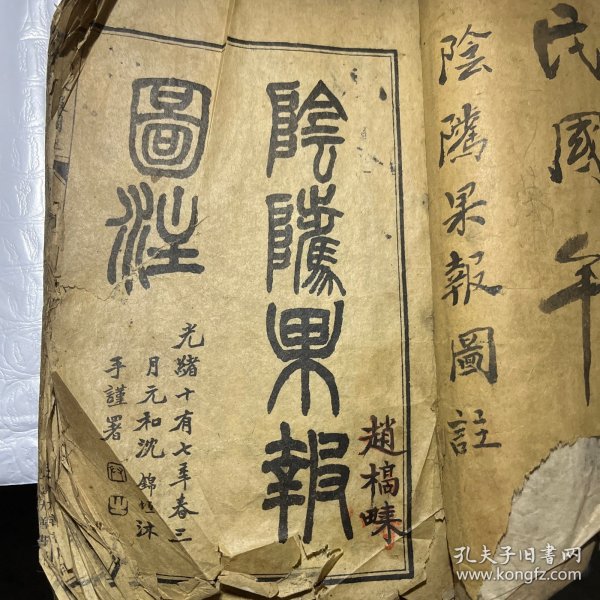 民國年
陰隲果報圖註
陰隲果報
圖注
光緒十有七年春三
月元和沈錦垣沐
手謹署
趙槁
孔夫子旧书网
www.kongfz.com